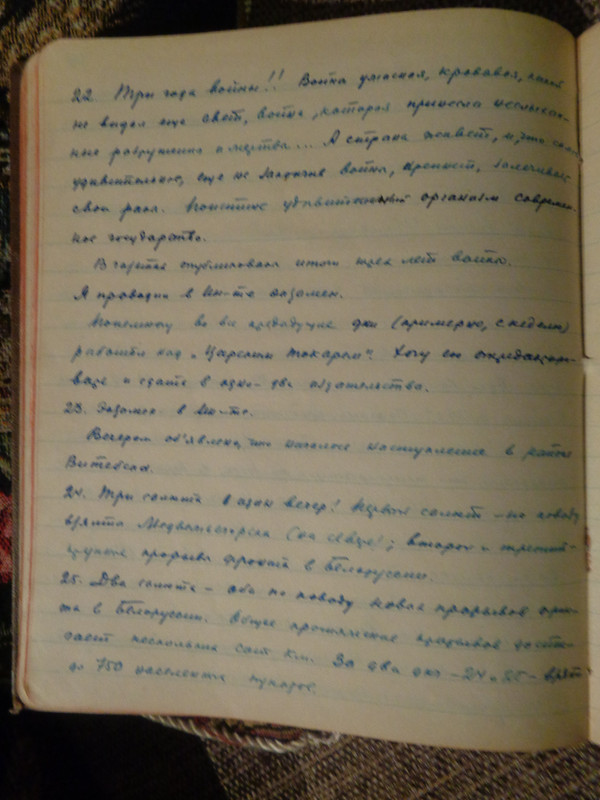 22. Три года войны!! Война ужасная, кровавая, какой
не видел еще свет, война, которая принесла неслыхан-
ные разрушения и жертвы... А страна живет, и, что самое
удивительное, еще не закончив войны, крепнет, залечивает
свои раны. Поистине удивительный организм современ-
ное государство.
В газетах опубликованы итоги трех лет войны.
Я проводил в Ин-те экзамен.
Понемногу во все предыдущие дни (примерно, с неделю)
работал над „Царским токарем". Хочу его отредактиро-
вать и сдать в одно-два издательства.
23. Экзамен в Ин-те.
Вечером об'явлено, что началось наступление в районе
Витебска.
24. Три салюта в один вечер! Первый салют – по поводу
взятия Медвежьегорска (на севере); второй и третий –
прорыва фронта в Белоруссии.
25. Два салюта – оба по поводу новых прорывов фрон-
та в Белоруссии. Общее протяжение прорывов дости-
гает несколько сот км. За два дня – 24 и 25 – взято
до 750 населенных пунктов.